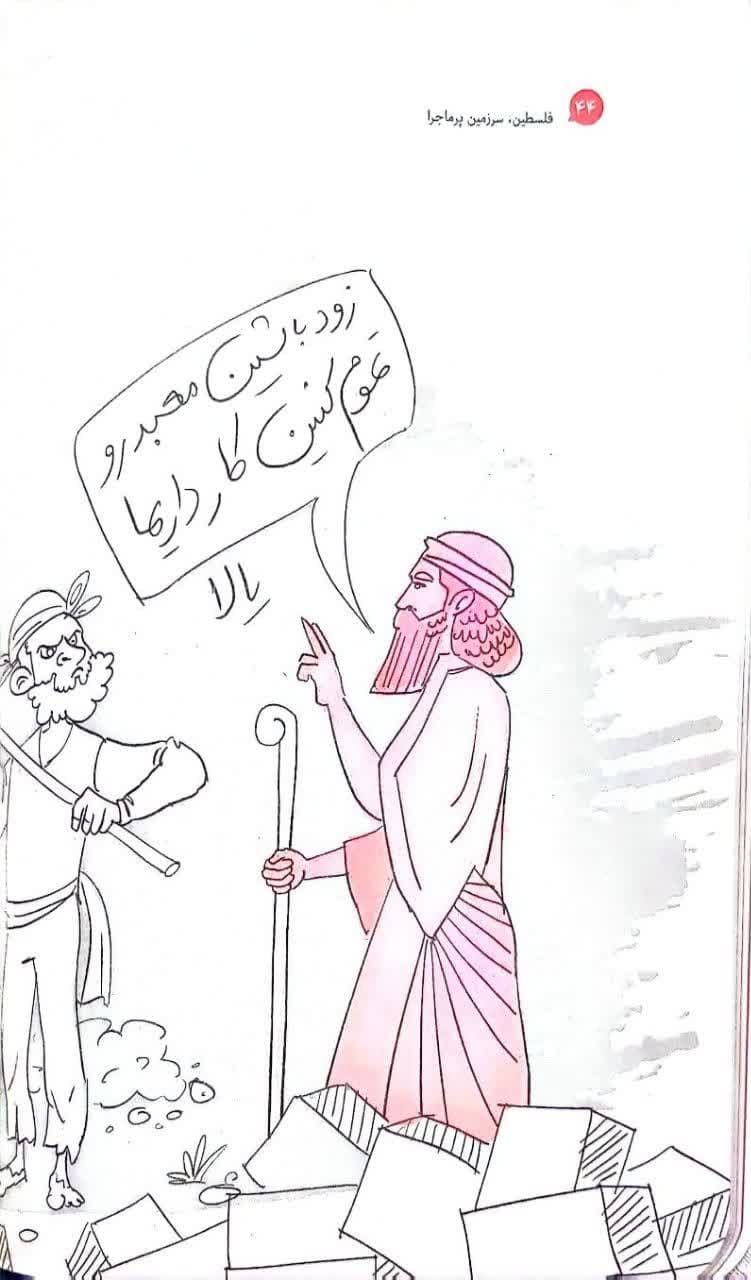 ۴۴
فلسطین، سرزمین پرماجرا
زود باشین معبد رو
تموم کنین کار داریما
یالا